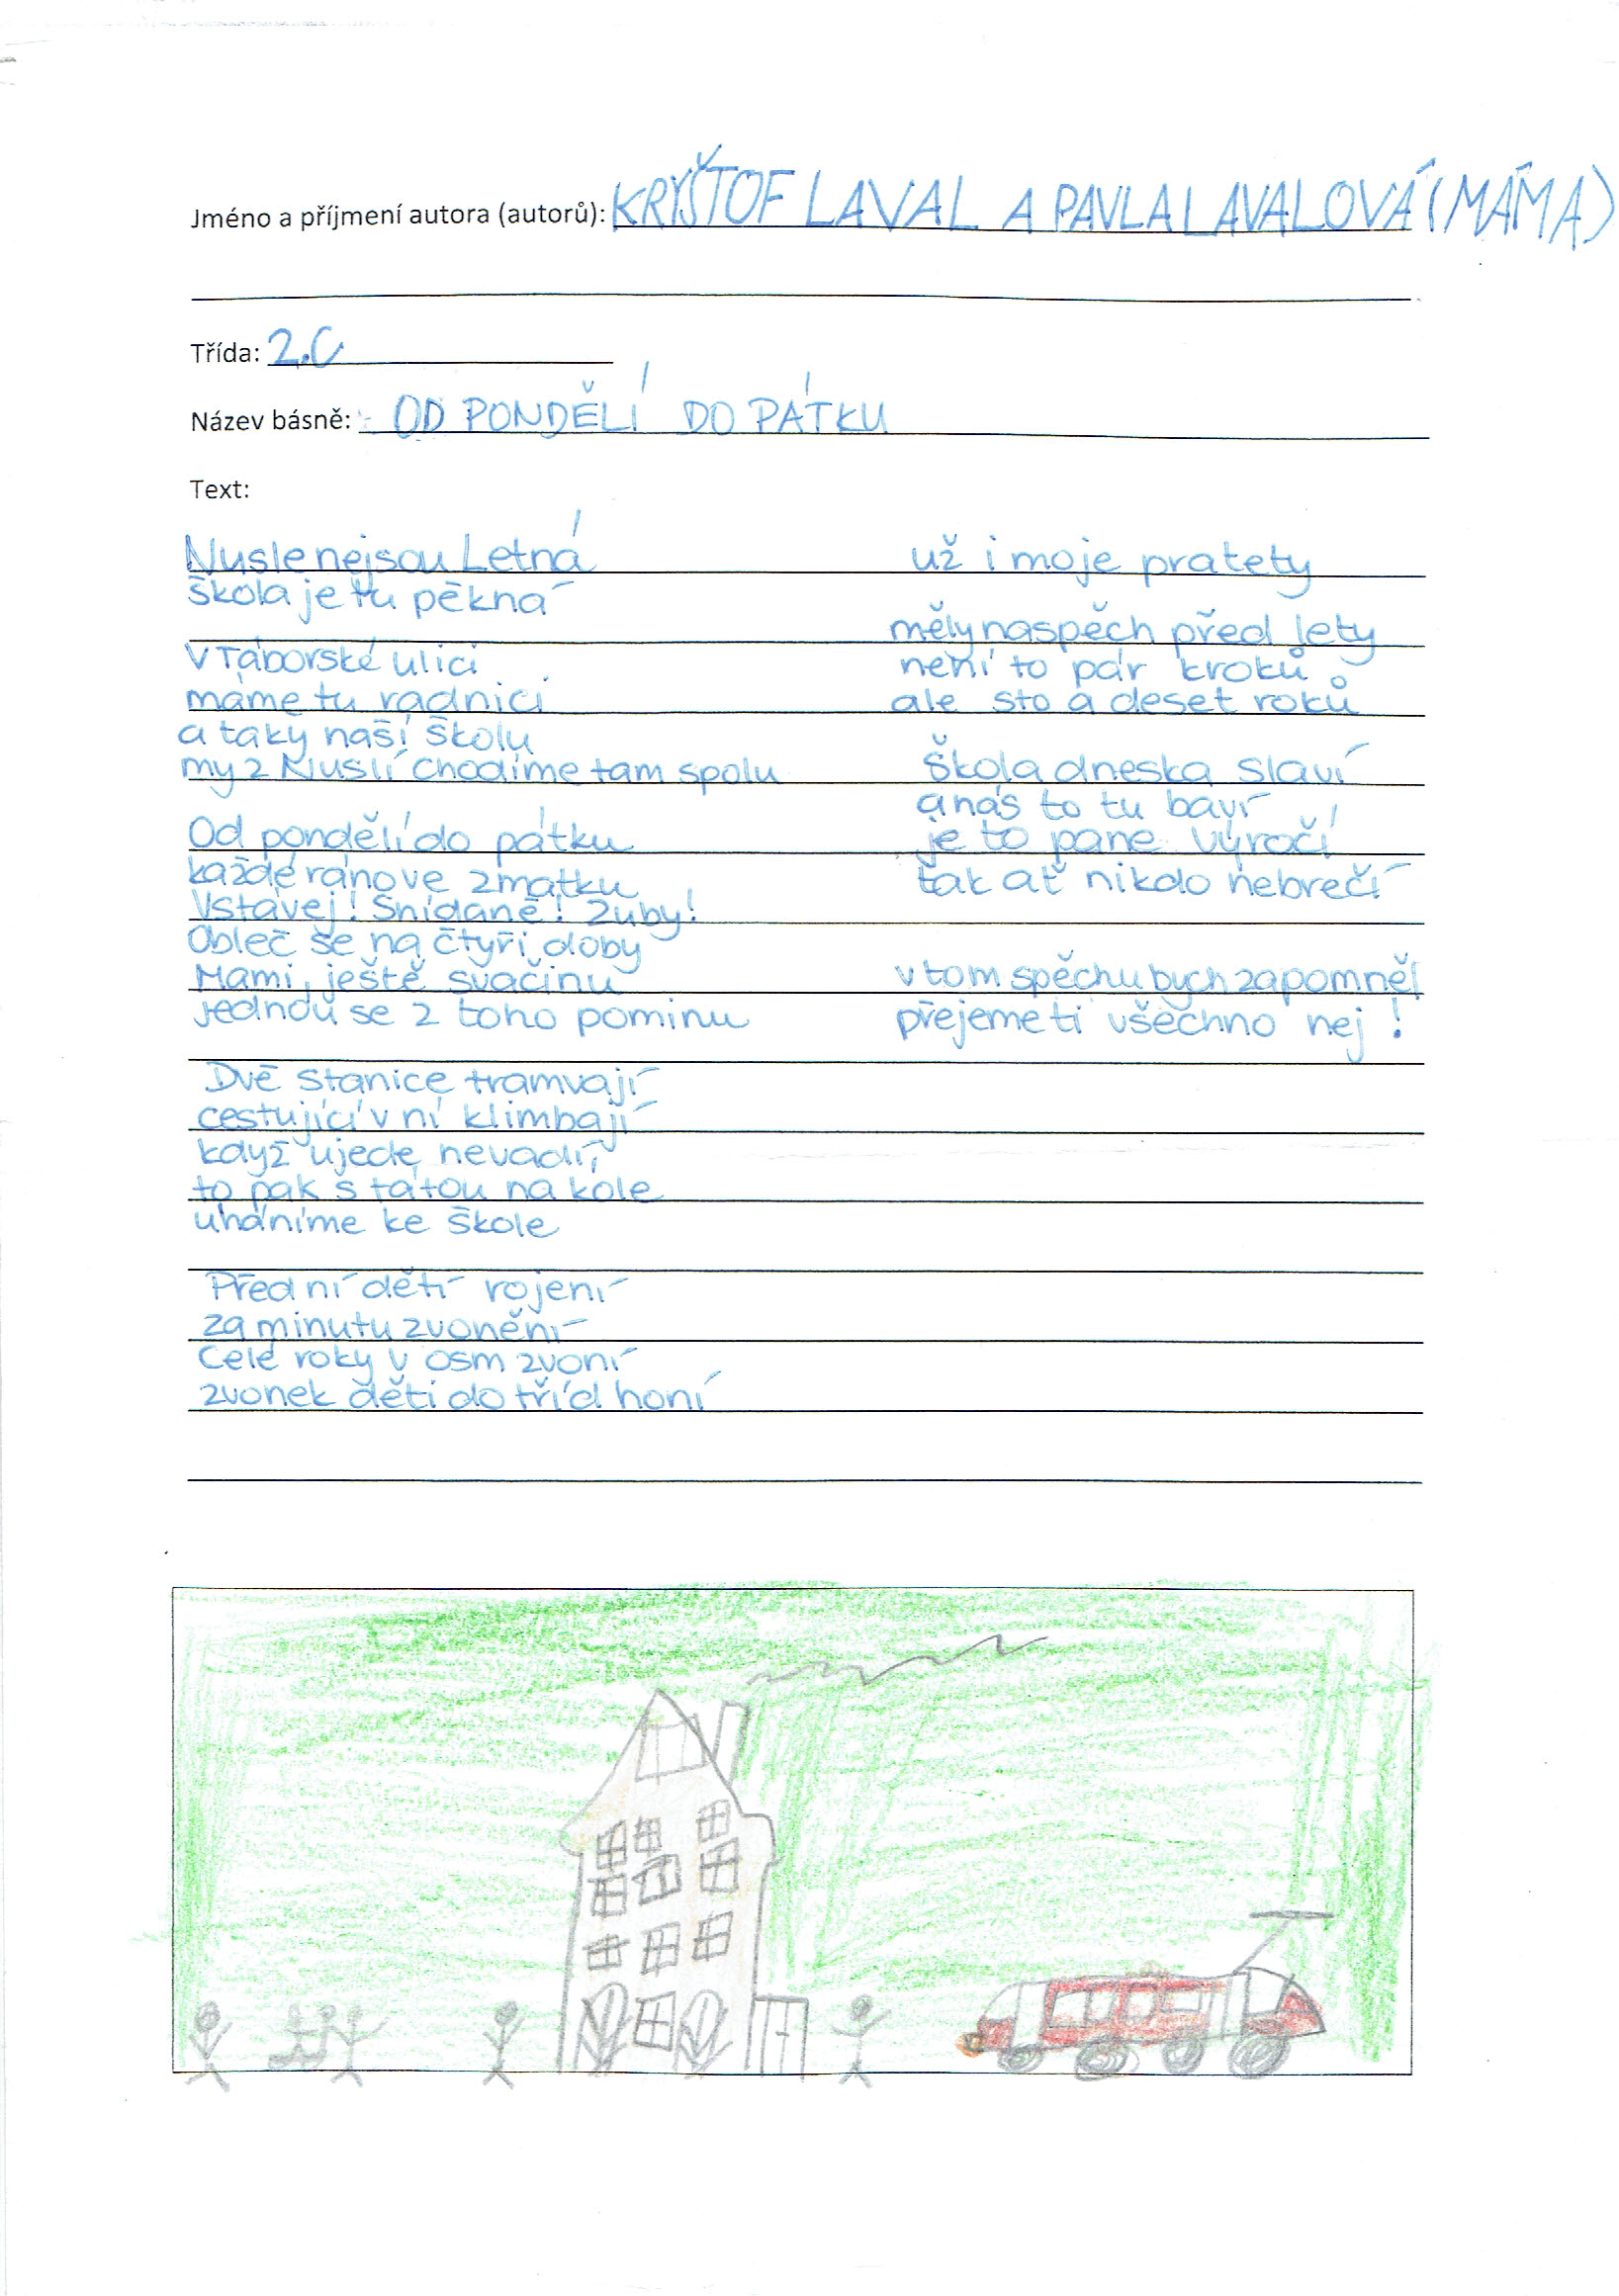 Jméno a příjmení autora (autorů): KRYŠTOF LAVAL A PAVLA LAVALOVÁ (MÁMA)
Třída: 2.C
Název básně: OD PONDĚLÍ DO PÁTKU
Text:
Nusle nejsou Letná
škola je tu pěkná
V Táborské ulici
máme tu radnici
a taky naší školu
my z Nuslí chodíme tam spolu
Od pondělí do pátku
každé ráno ve zmatku
Vstávej! Snídaně! Zuby!
Obleč se na čtyři doby
Mami, ještě svačinu
jednou se z toho pominu
Dvě stanice tramvají
cestující v ní klimbají
když ujede, nevadí,
to pak s tátou na kole
uháníme ke škole
Před ní dětí rojení
za minutu zvonění
Celé roky v osm zvoní
zvonek děti do tříd honí
už i moje pratety
měly naspěch před lety
není to pár kroků
ale sto a deset roků
škola dneska slaví
a nás to tu baví
je to pane výročí
tak ať nikdo nebrečí
v tom spěchu bych zapomněl
přejeme ti všechno nej!